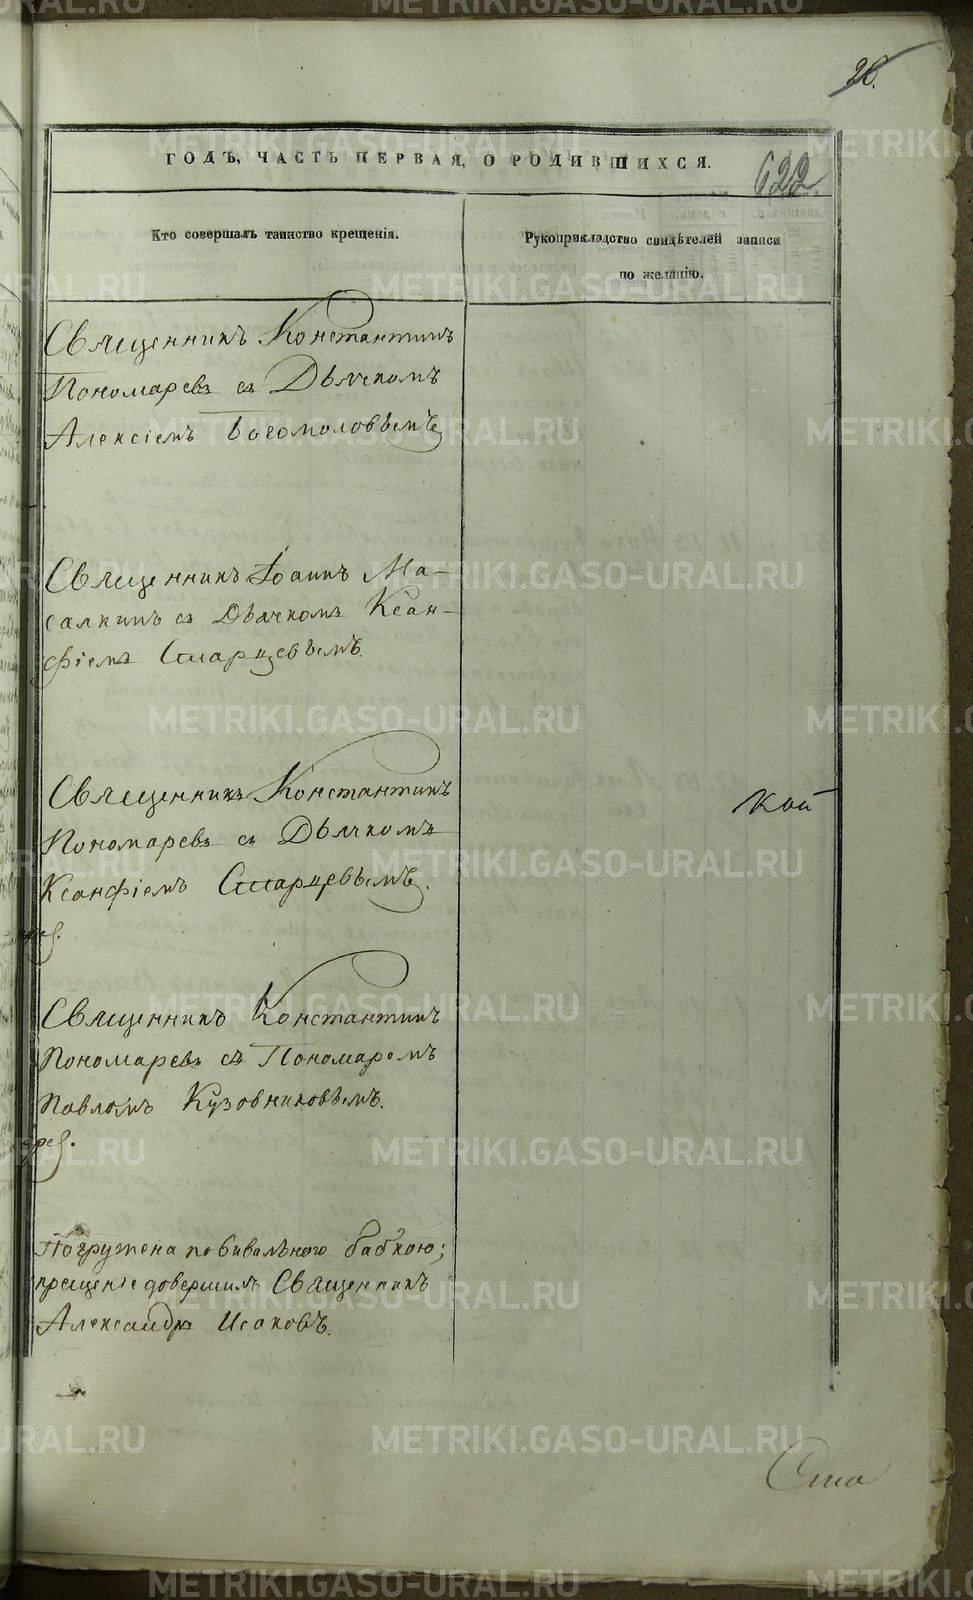 20.
ГОДЪ, ЧАСТЬ ПЕРВАЯ, О РОДИВШИХСЯ.
622
Кто совершалъ таинство крещенія.
Рукоприкладство свидѣтелей записи
по желанію.
Священникъ Константинъ
Пономаревъ съ Дьячкомъ
Алексіемъ Богомоловымъ
Священникъ Іоаннъ Ма-
салкинъ съ Дьячкомъ Ксан-
фіемъ Смарцевымъ.
Священникъ Константинъ
Пономаревъ съ Дьячкомъ
Ксанфіемъ Смарцевымъ.
кой
Священникъ Константинъ
Пономаревъ съ Пономаремъ
Павломъ Кузовниковымъ.
Погружена повивальною бабкою;
крещеніе довершилъ Священникъ
Александръ Исаковъ.
METRIKI.GASO-URAL.RU